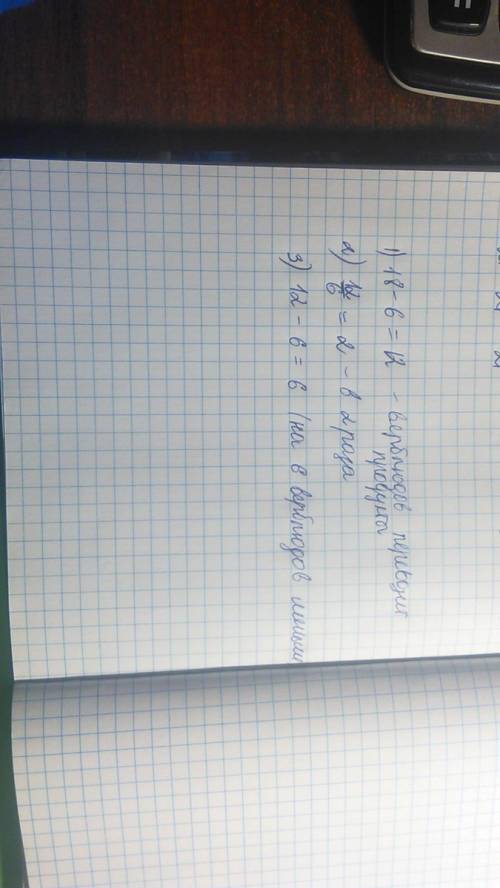 1) 18 - 6 = 12 - верблюдов перевозит
продукты
2) 12/6 = 2 - в 2 раза
3) 12 - 6 = 6 (на 6 верблюдов меньше